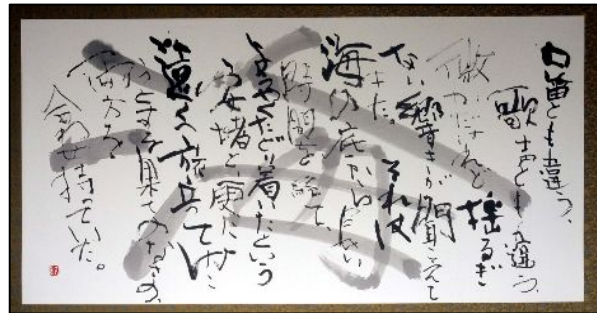 口笛とも違う、
歌声とも違う。
微かだけれど揺るぎ
ない響きが聞こえて
きた。それは
海の底から長い
時間を経て、
ようやくたどり着いたという
安堵と、更に
遠く旅立ってゆこ
うとする果てのなさの、
両方を
合わせ持っていた。